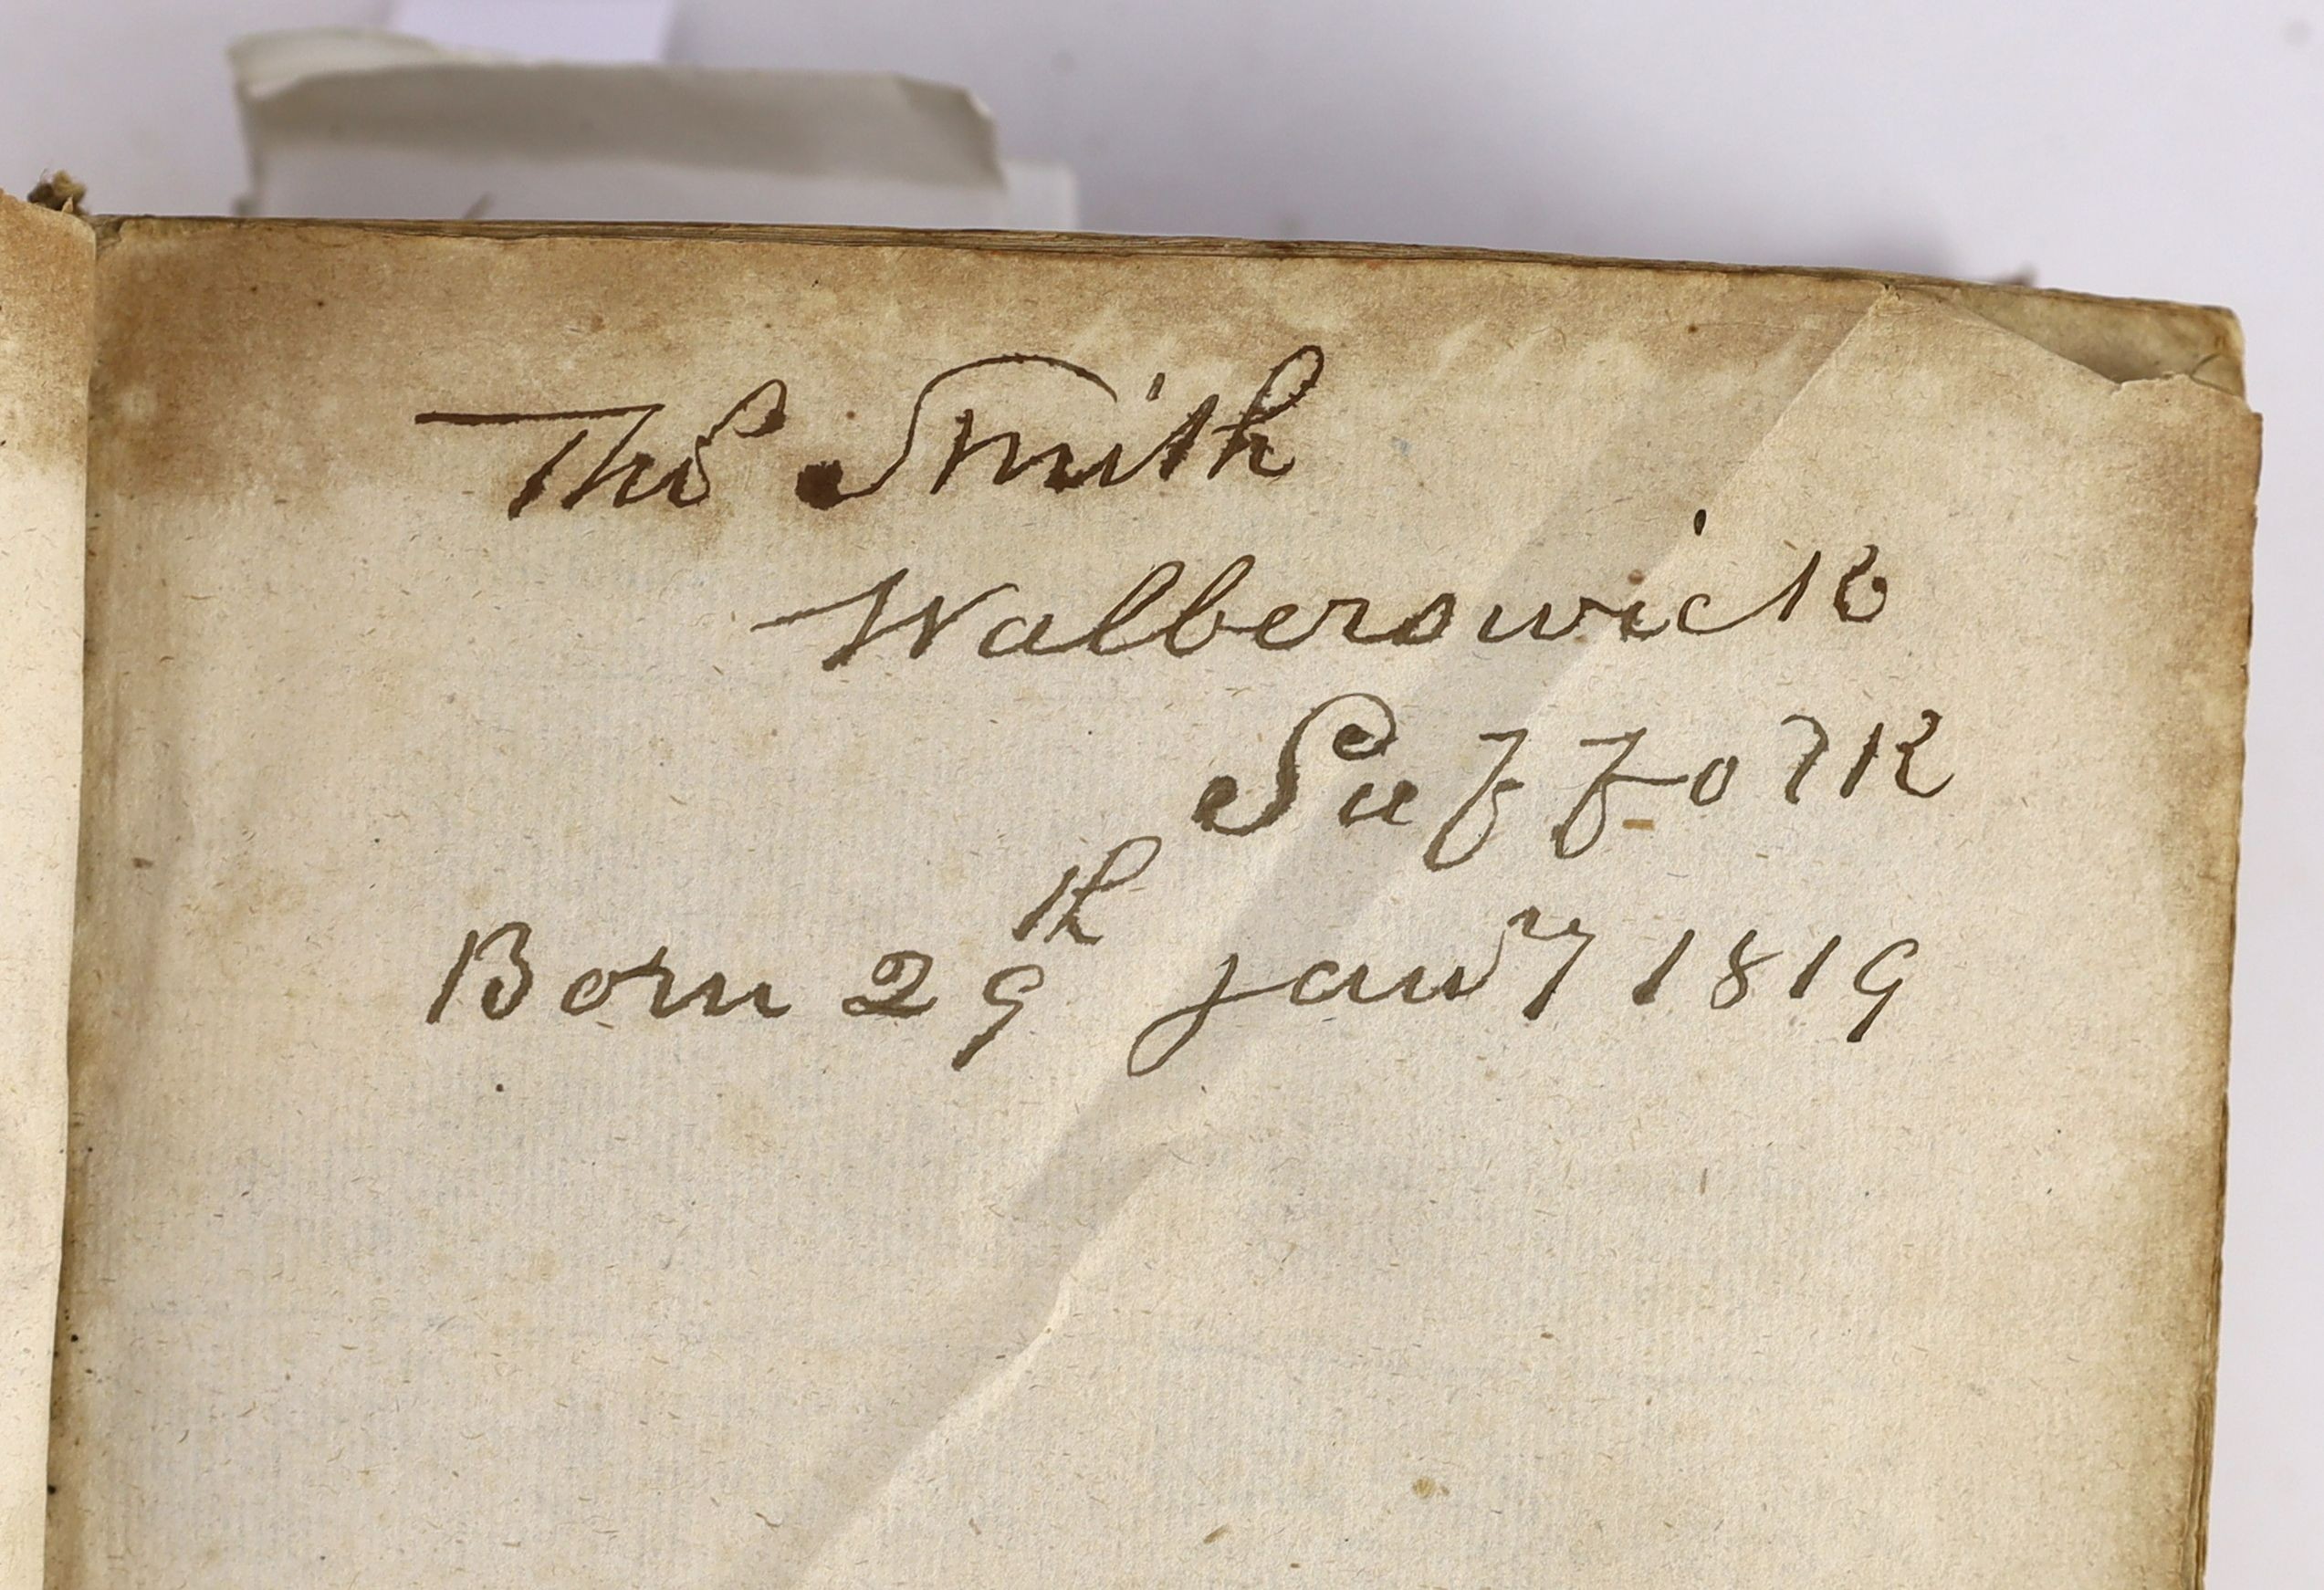 Thos Smith
Walberswick
Suffolk
Born 29th Janry 1819